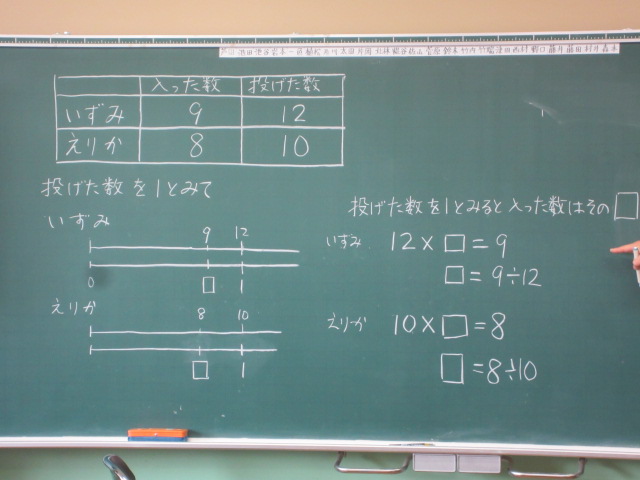 入った数 投げた数
いずみ 9 12
えりか 8 10
投げた数を1とみて
いずみ
9 12
0 □ 1
えりか
8 10
□ 1
投げた数を1とみると入った数はその□
いずみ 12×□=9
□=9÷12
えりか 10×□=8
□=8÷10